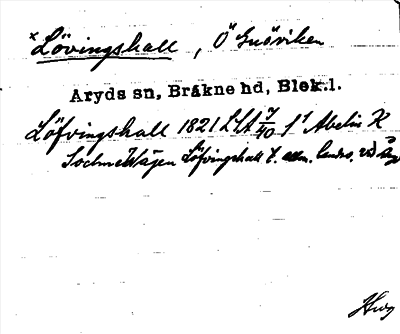 *Lövingshall, Ö Gusöviken
Aryds sn, Bräkne hd, Blek.l.
Löfvingshall 1821 LSA 7/40 f 1 Abelin K
Sockne Wägen Löfvingshall t. allm. landsv. vid Åry